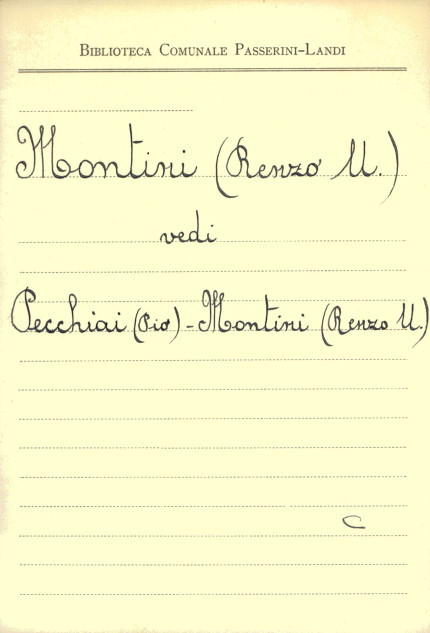 Biblioteca Comunale Passerini-Landi
Montini (Renzo U.)
vedi
Pecchiai (Pio) - Montini (Renzo U.)
C